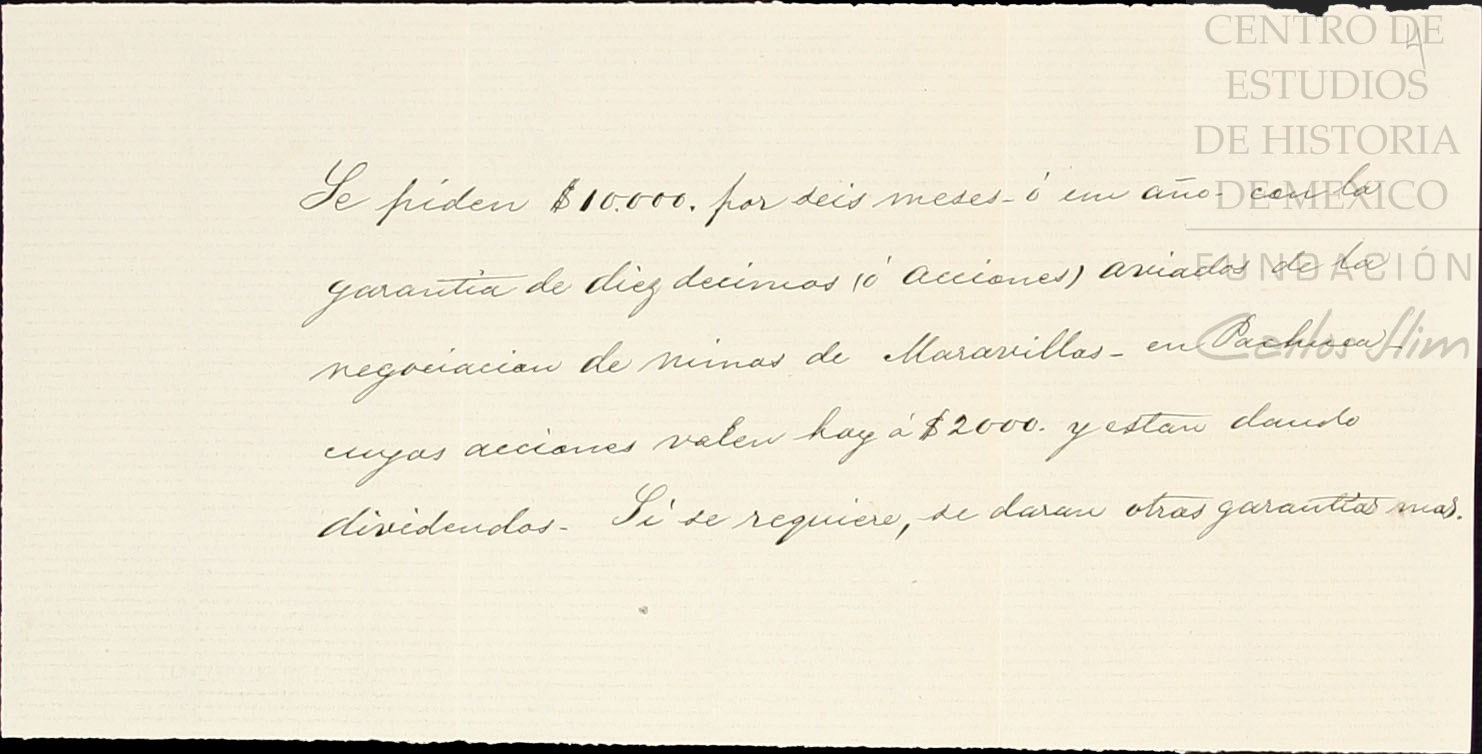 CENTRO DE
ESTUDIOS
DE HISTORIA
DE MEXICO
FUNDACIÓN
Carlos Slim
4
Se piden $10.000. por seis meses - ó un año - con la
garantia de diez decimos (ó acciones) aviadas de la
negociacion de minas de Maravillas - en Pachuca -
cuyas acciones valen hoy á $2000. y estan dando
dividendos - Si se requiere, se daran otras garantías mas.